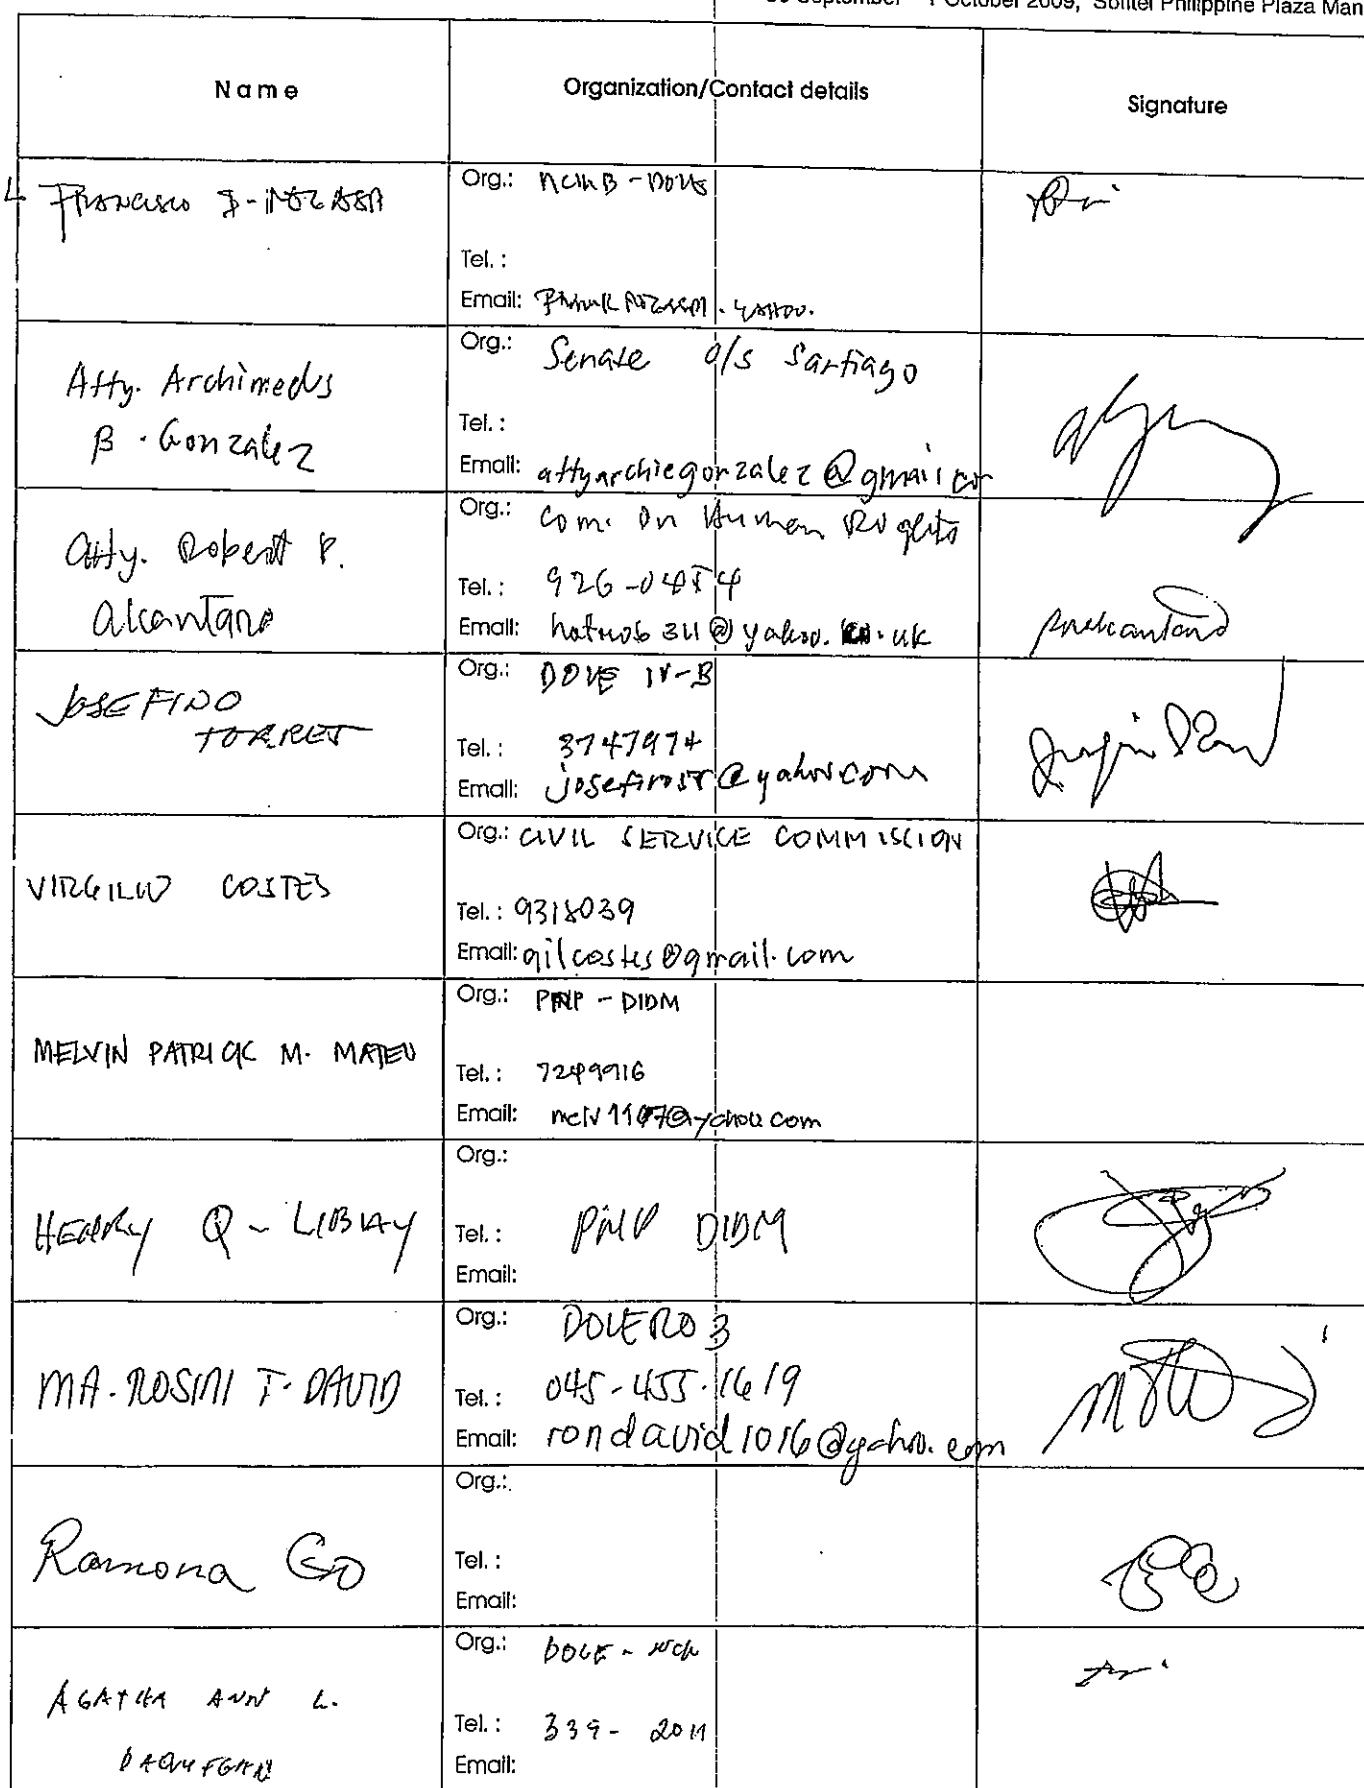 1 October 2009, Sofitel Philippine Plaza Man
Name
Organization/Contact details
Signature
Francisco
Org.: NCMB - DOLE
Tel. :
Email:
Atty. Archimedes
B. Gonzalez
Org.: Senate o/s Santiago
Tel. :
Email: attyarchiegonzalez@gmail.co
Atty. Robert P.
Alcantara
Org.: Com. on Human Rights
Tel. : 926-0454
Email: @yahoo.co.uk
JOSEFINO
TORRES
Org.: DOLE IV-B
Tel. : 3747974
Email: josefinost@yahoo.com
VIRGILIO COSTES
Org.: CIVIL SERVICE COMMISSION
Tel. : 9318039
Email: gilcostes@gmail.com
MELVIN PATRICK M. MATEO
Org.: PNP - DIDM
Tel. : 7249916
Email: @yahoo.com
HENRY Q. LIBAY
Org.:
Tel. : PNP DIDM
Email:
MA. T. DAVID
Org.: DOLE RO 3
Tel. : 045-455-1619
Email: rondavid1016@yahoo.com
Ramona Go
Org.:
Tel. :
Email:
AGATHA ANN L.
Org.: DOLE - NCR
Tel. : 339-2011
Email: